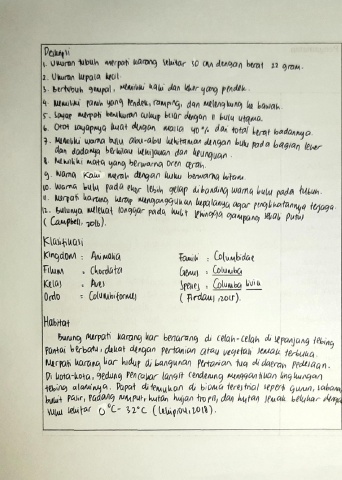 Deskripsi
1. Ukuran tubuh merpati karang sekitar 30 cm dengan berat 22 gram.
2. Ukuran kepala kecil.
3. Bertubuh gempal, memiliki kaki dan leher yang pendek.
4. Memiliki paruh yang pendek, ramping, dan melengkung ke bawah.
5. Sayap merpati berukuran cukup besar dengan 11 bulu utama.
6. Otot sayapnya kuat dengan massa 40% dari total berat badannya.
7. Memiliki warna bulu abu-abu kehitaman dengan bulu pada bagian leher
dan dadanya berkilau kehijauan dan keunguan.
8. Memiliki mata yang berwarna oren cerah.
9. Warna kaki merah dengan kuku berwarna hitam.
10. Warna bulu pada ekor lebih gelap dibanding warna bulu pada tubuh.
11. Merpati karang kerap menganggukan kepalanya agar penglihatannya terjaga.
12. Bulunya melekat longgar pada kulit sehingga gampang lebat putus
(Campbell, 2016).
Klasifikasi
Kingdom : Animalia Famili : Columbidae
Filum : Chordata Genus : Columba
Kelas : Aves Spesies : Columba livia
Ordo : Columbiformes (Firdaus, 2015).
Habitat
Burung merpati karang liar bersarang di celah-celah di sepanjang tebing
pantai berbatu, dekat dengan pertanian atau vegetasi semak terbuka.
Merpati karang liar hidup di bangunan pertanian tua di daerah pedesaan.
Di kota-kota, gedung pencakar langit cenderung menggantikan lingkungan
tebing alaminya. Dapat ditemukan di bioma terestrial seperti gurun, sabana,
bukit pasir, padang rumput, hutan hujan tropis, dan hutan semak belukar dengan
suhu sekitar 0°C - 32°C